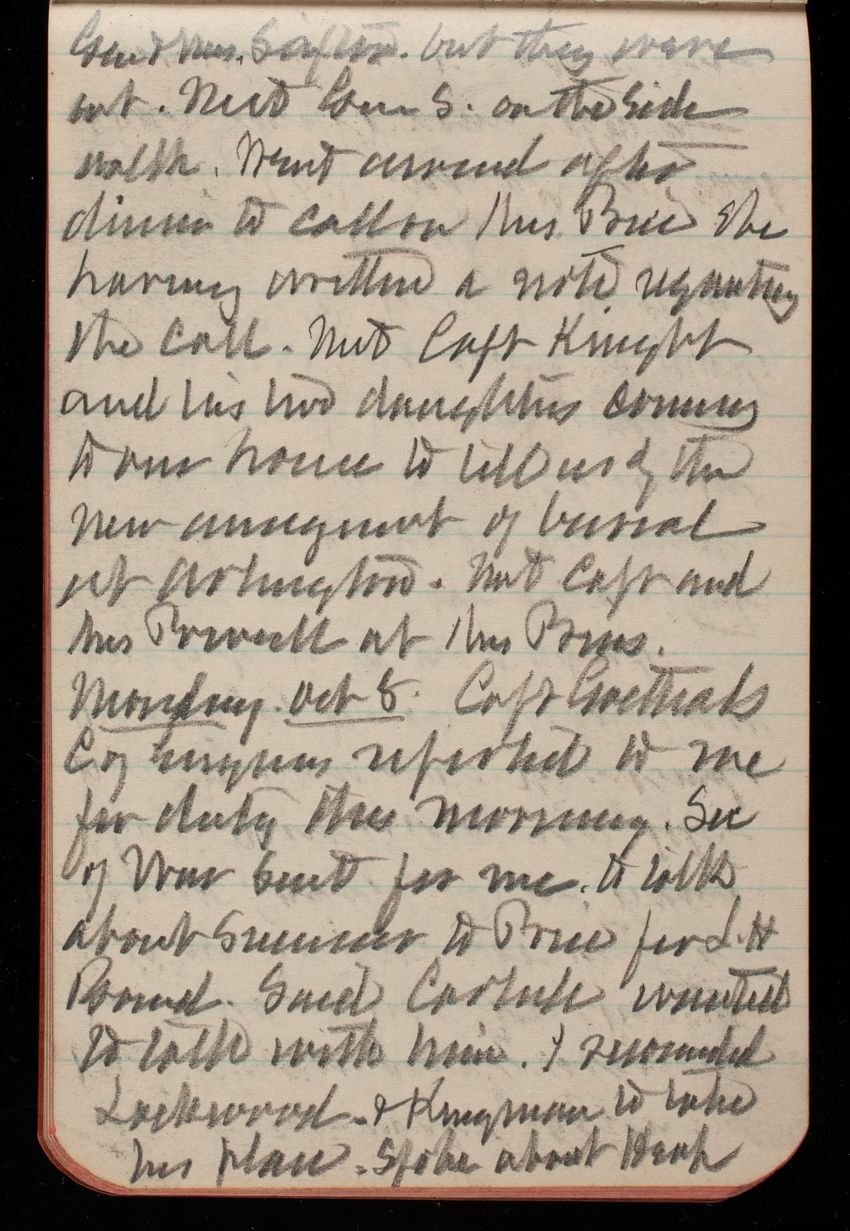 Genl & Mrs. Saxton. but they were
out. Met Com S. on the side
walk. Went around after
dinner to call on Mrs Price She
having written a note requesting
the call. Met Capt Knight
and his two daughters coming
to our house to tell us of the
new of burial
at Arlington. Met Capt and
Mrs Powell at Mrs Prices.
Monday Oct 8. Capt Goethals
C of engineers reported to me
for duty this morning. Sec
of War sent for me. to talk
about Successor to Price for L.H
Board. Said Carlisle wanted
to talk with him. I recommended
Lockwood & Kingman to take
his place. Spoke about Heap